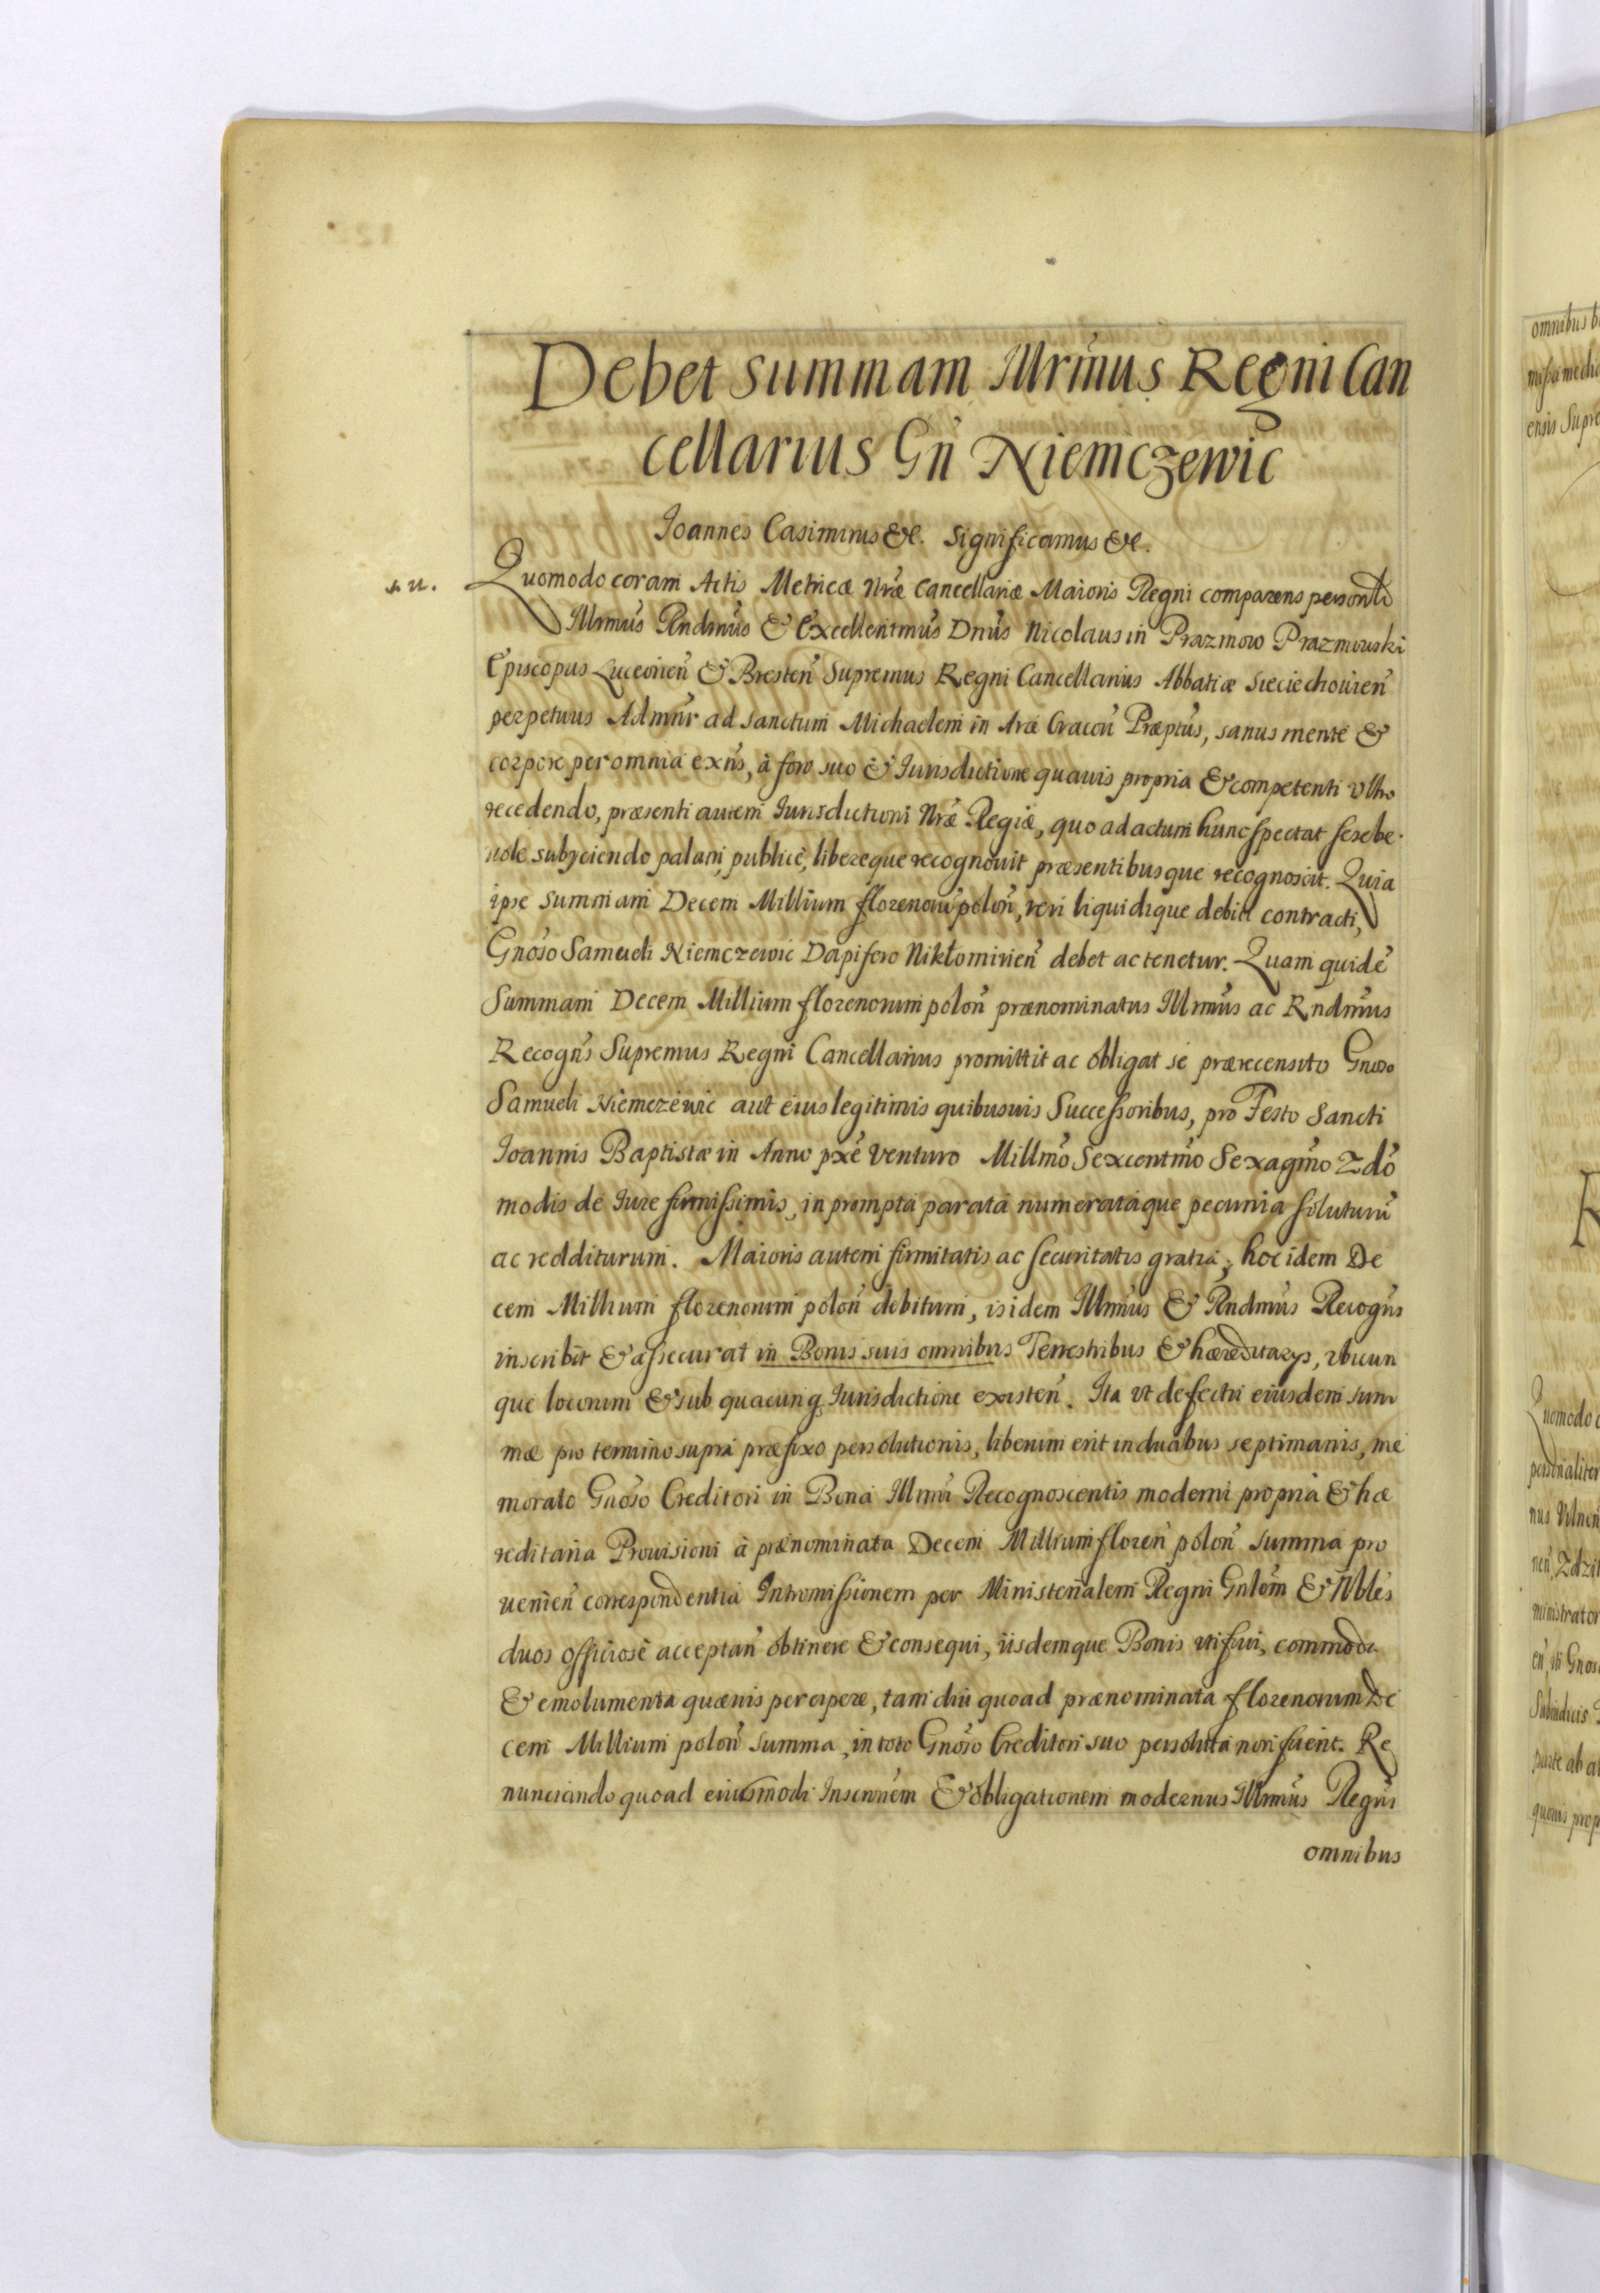 Debet summam Illrm̃us Regni Can
cellarius Gñ Niemczewic
Ioannes Casimirus &c. Significamus &c.
Quomodo coram Actis Metricæ Nr̃æ Cancellariæ Maioris Regni comparens personlr̃
Illrmũs Rndmũs & Excellentmũs Dnũs Nicolaus in Prazmow Prazmowski
Episcopus Luceorien̄ & Bresten̄ Supremus Regni Cancellarius Abbatiæ Sieciechouien̄
perpetuus Admnr̃ ad Sanctum Michaelem in Arce Cracou̇ Præptũs, sanus mente &
corpore per omnia exñs, à foro suo & Iurisdictione quauis propria & competenti vltro
recedendo, præsenti autem Iurisdictioni Nr̃æ Regiæ, quo ad actum hunc spectat sese be
nole subyciendo palam, publicè, libereque recognouit præsentibusque recognoscit. Quia
ipse summam Decem Millium florenorũ polon̄, veri liquidique debiti contracti,
Gnoso Samueli Niemczewic Dapifero Niktomirien̄ debet ac tenetur. Quam quidẽ
Summam Decem Millium florenorum polon̄ prænominatus Illrmũs ac Rndmũs
Recogñs Supremus Regni Cancellarius promittit ac obligat se prærecensito Gnoso
Samueli Niemczewic aut eius legitimis quibusuis Successoribus, pro Festo Sancti
Ioannis Baptistæ in Anno pxẽ venturo Millmõ Sexcentmõ Sexagmõ 2dõ
modis de Iure firmissimis, in prompta parata numerataque pecunia soluturũ
ac redditurum. Maioris autem firmitatis ac securitatis gratia, hoc idem De
cem Millium florenorum polon̄ debitum, isidem Illrmũs & Rndmũs Recogñs
inscribit & assecurat in Bonis suis omnibus Terrestribus & hæreditarys, vbicun
que locorum & sub quacunq Iurisdictione existen̄. Ita vt defectu eiusdem sum
mæ pro termino supra præfixo persolutionis, liberum erit in duabus septimanis, me
morato Gnoso Creditori in Bona Illrmi Recognoscentis moderni propria & hæ
reditaria Prouisioni à prænominata Decem Millium floren̄ polon̄ summa pro
uenien̄ correspondentia Intromissionem per Ministerialem Regni Gnlem̃ & Nbles
duos officiosè acceptan̄ obtinere & consequi, iisdemque Bonis vti frui, commoda
& emolumenta quæuis percipere, tam diu quoad prænominata florenorum De
cem Millium polon̄ summa, in toto Gnoso Creditori suo persoluta non fuerit. Re
nunciando quoad eiusmodi Inscrnem̃ & obligationem modernus Illrmũs Regñs
omnibus